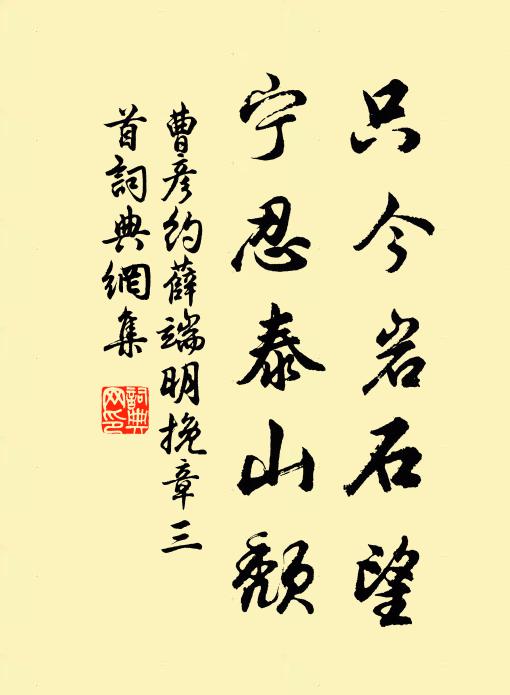 只今岩石望
宁忍泰山颓
曹彦约薛端明挽章三
首詞典網集
詞典
网印